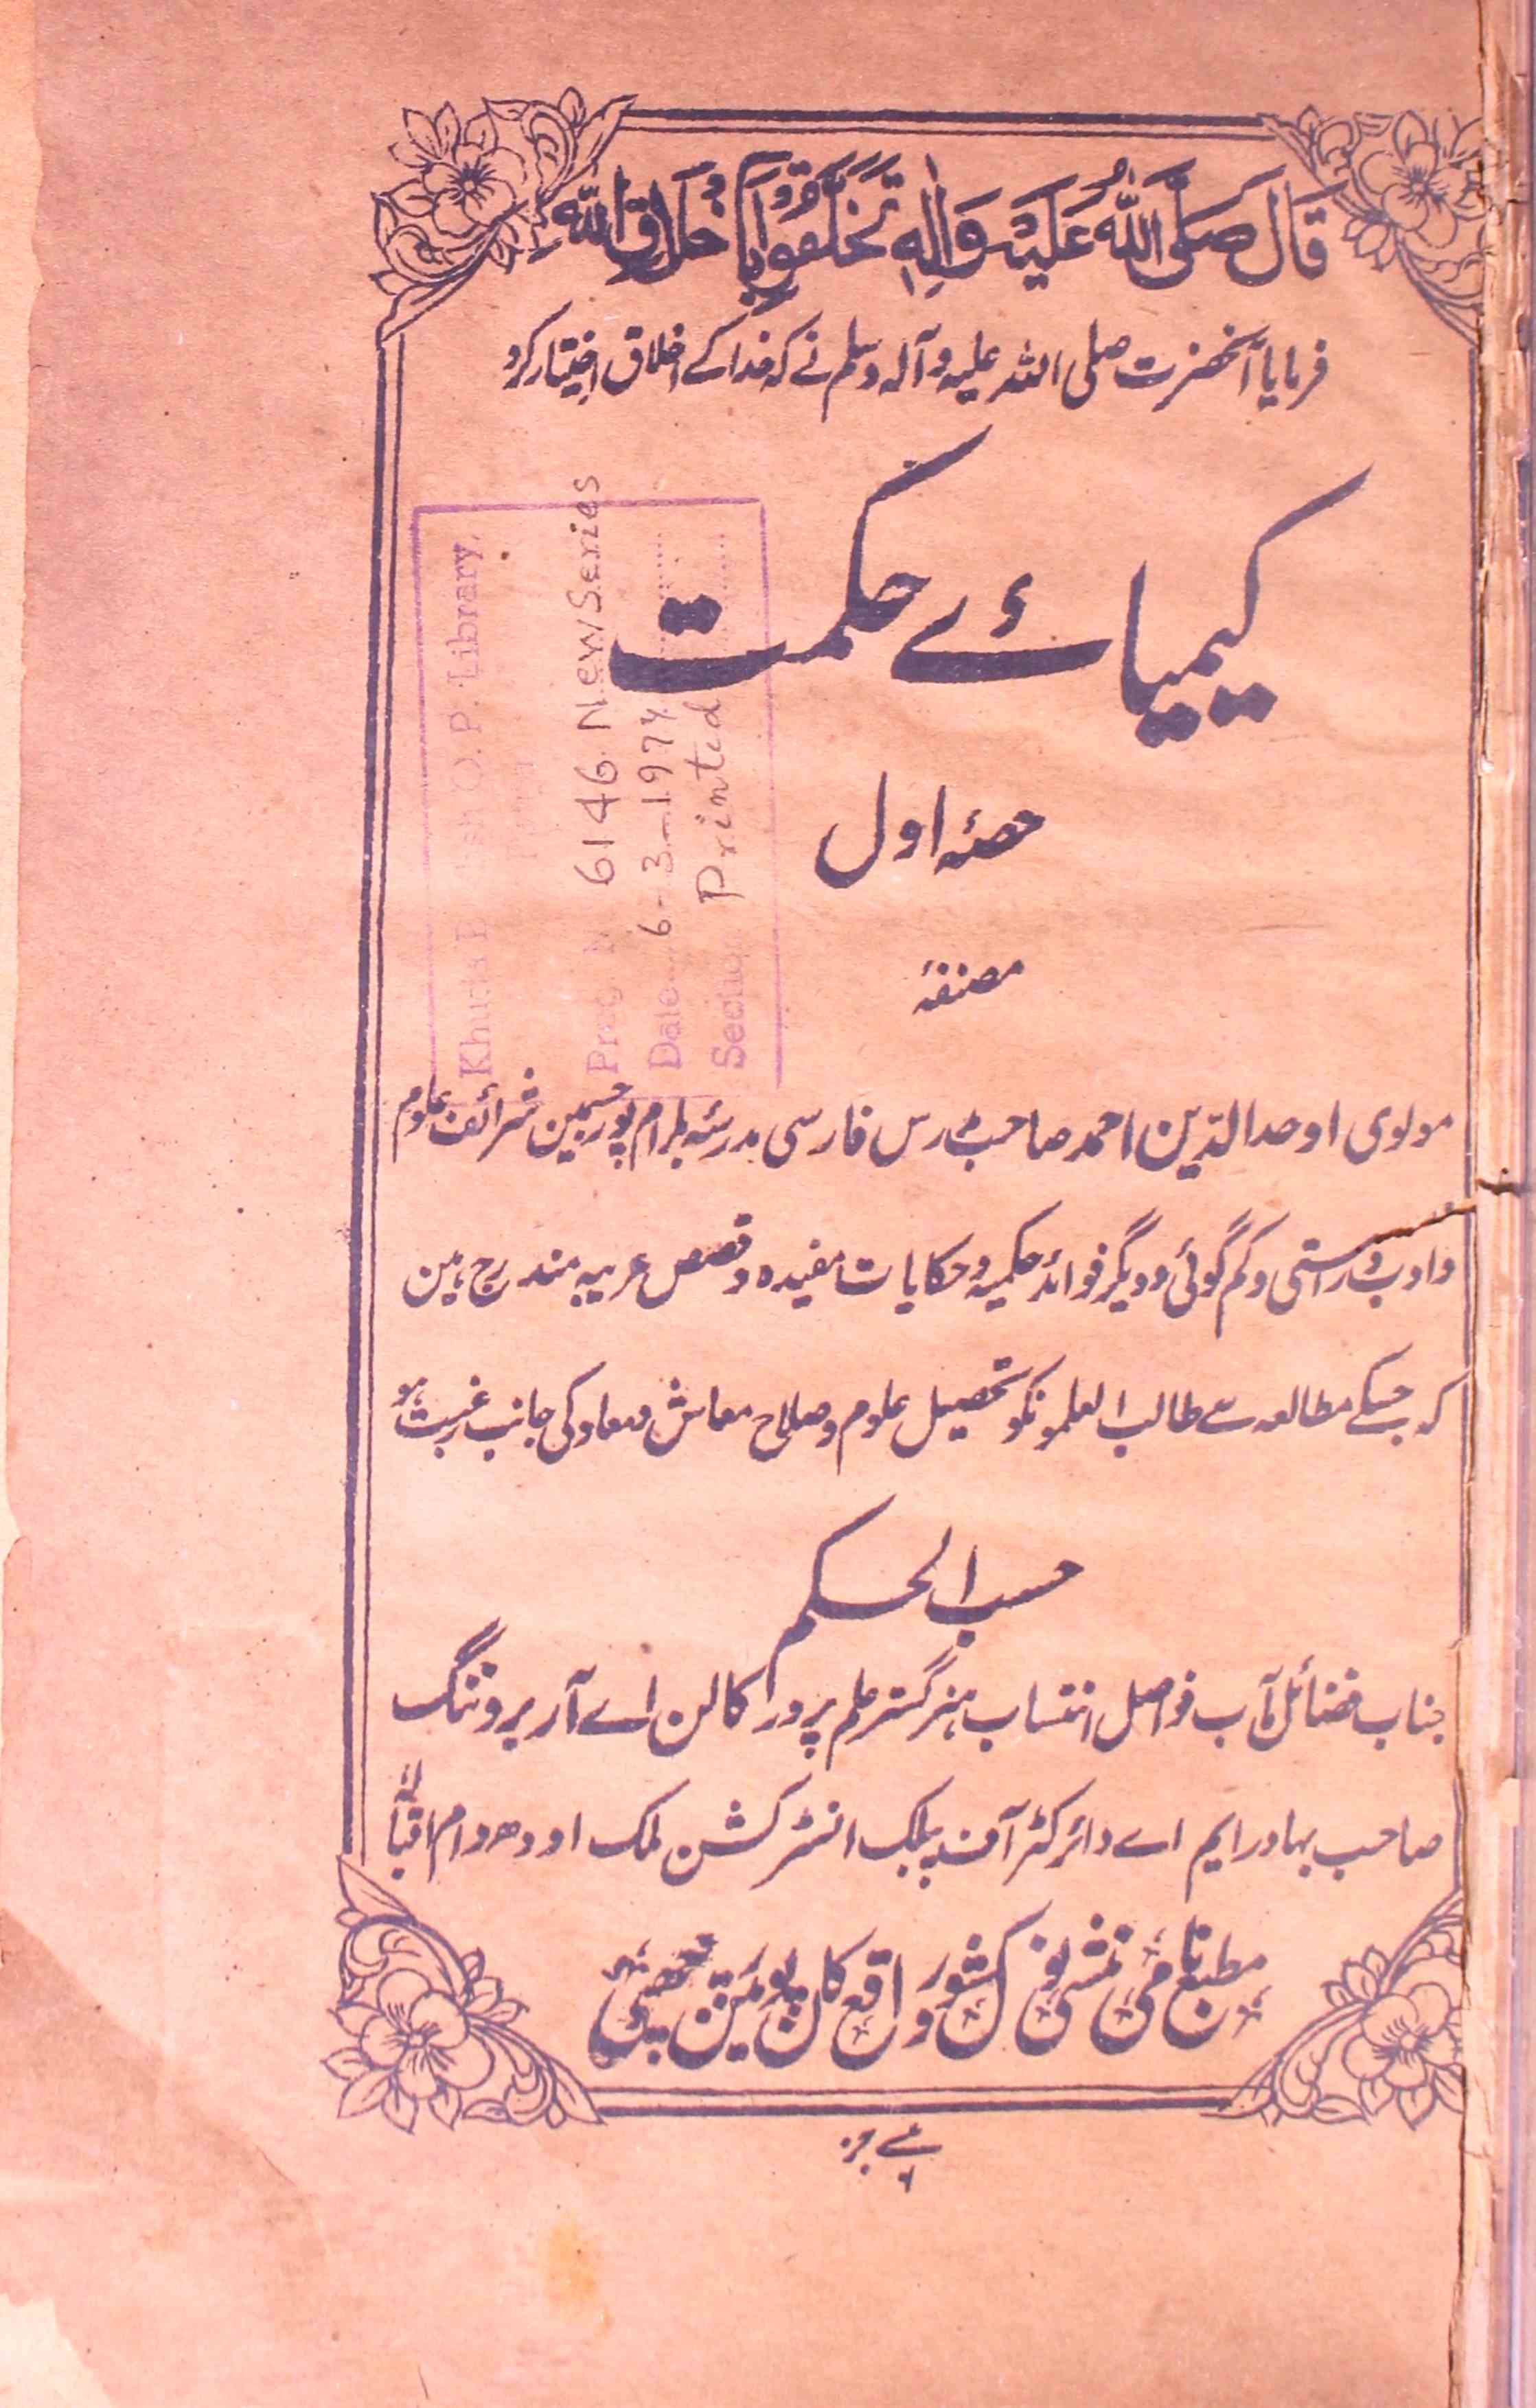 قَالَ صَلَّی اللّٰهُ عَلَیْهِ وَاٰلِهٖ تَخَلَّقُوْا بِاَخْلَاقِ اللّٰهِ
فرمایا آنحضرت صلی اللہ علیہ وآلہ وسلم نے کہ خدا کے اخلاق اختیار کرو
کیمیائے حکمت
حصۂ اول
مصنفۂ
مولوی اوحد الدین احمد صاحب مدرس فارسی مدرسۂ بلرام پور جسمین شرائف علوم
وادب وراستی وکم گوئی ودیگر فوائد حکمیہ وحکایات مفیدہ وقصص عربیہ مندرج ہین
کہ جسکے مطالعہ سے طالب العلمونکو تحصیل علوم وصلاح معاش ومعاد کی جانب رغبت ہو
حسب الحکم
جناب فضائل مآب فواضل انتساب ہنر گستر علم پرور کالن اے آر بروننگ
صاحب بہادر ایم اے دائرکٹر آف پبلک انسٹرکشن ملک اودھ دام اقبالہ
مطبع نامی منشی نولکشور واقع کانپور مین چھپی
Khuda Bakhsh O. P. Library,
Prog. No 6146 New Series
Date 6-3-1974
Section Printed